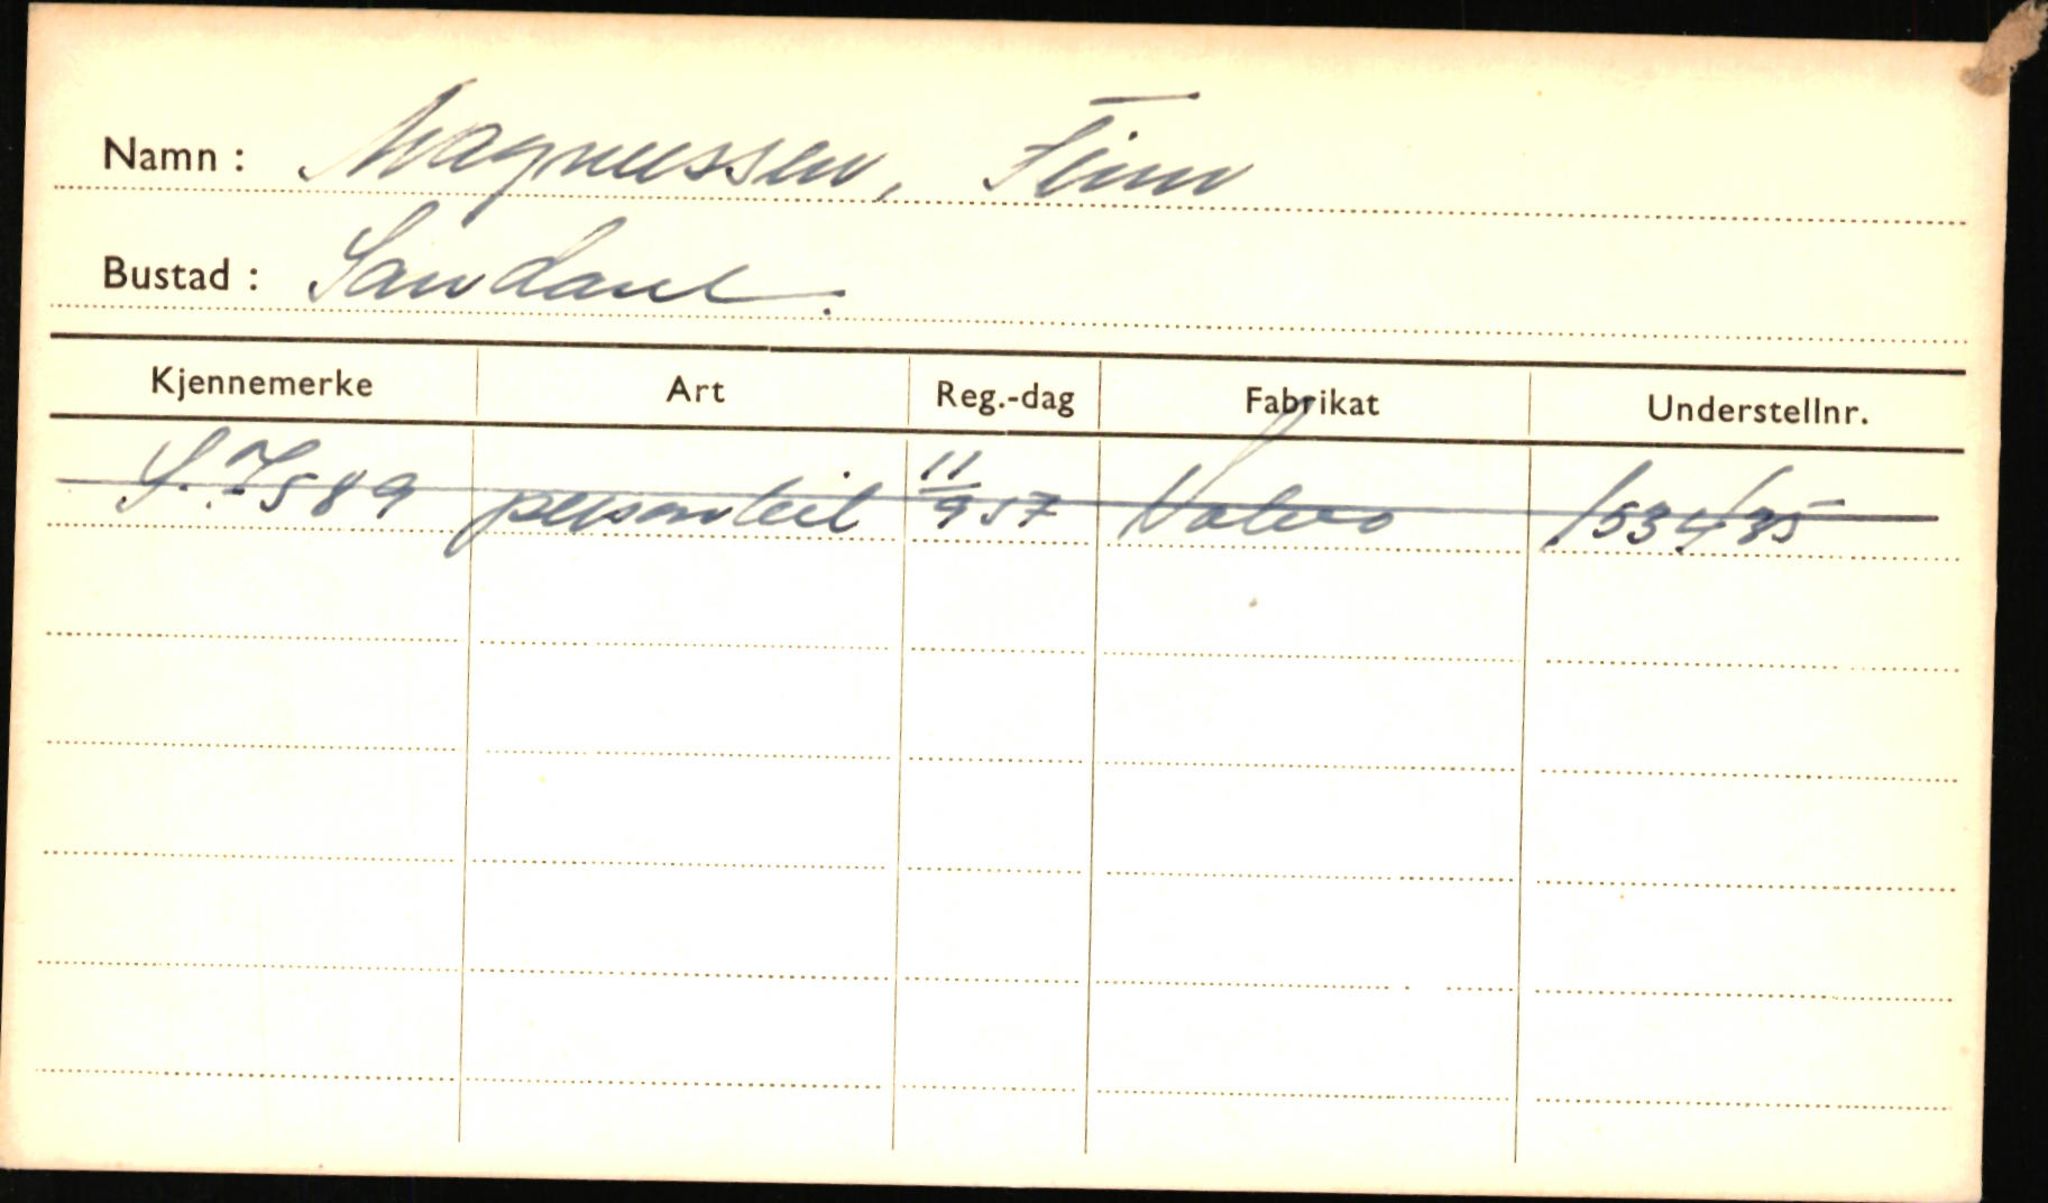 Namn : Magnussen, Finn
Bustad : Sandane.
Kjennemerke Art Reg.-dag Fabrikat Understellnr.
S. 7589 personbil 11/9 57 Volvo 153435